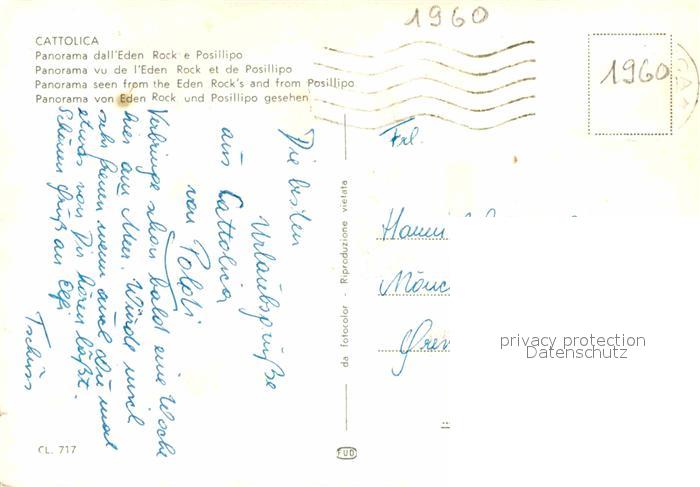 1960
CATTOLICA
Panorama dall'Eden Rock e Posillipo
Panorama vu de l'Eden Rock et de Posillipo
Panorama seen from the Eden Rock's and from Posillipo
Panorama von Eden Rock und Posillipo gesehen
1960
Die besten
Urlaubsgrüße
aus Cattolica
von Poldi
Verbringe schon bald eine Woche
hier am Meer. Würde mich
sehr freuen wenn auch Du mal
etwas von Dir hören läßt.
Schönen Gruß an Elfi
Tschüss
da fotocolor - Riproduzione vietata
Frl.
Hanni
privacy protection
Datenschutz
CL. 717
FUD